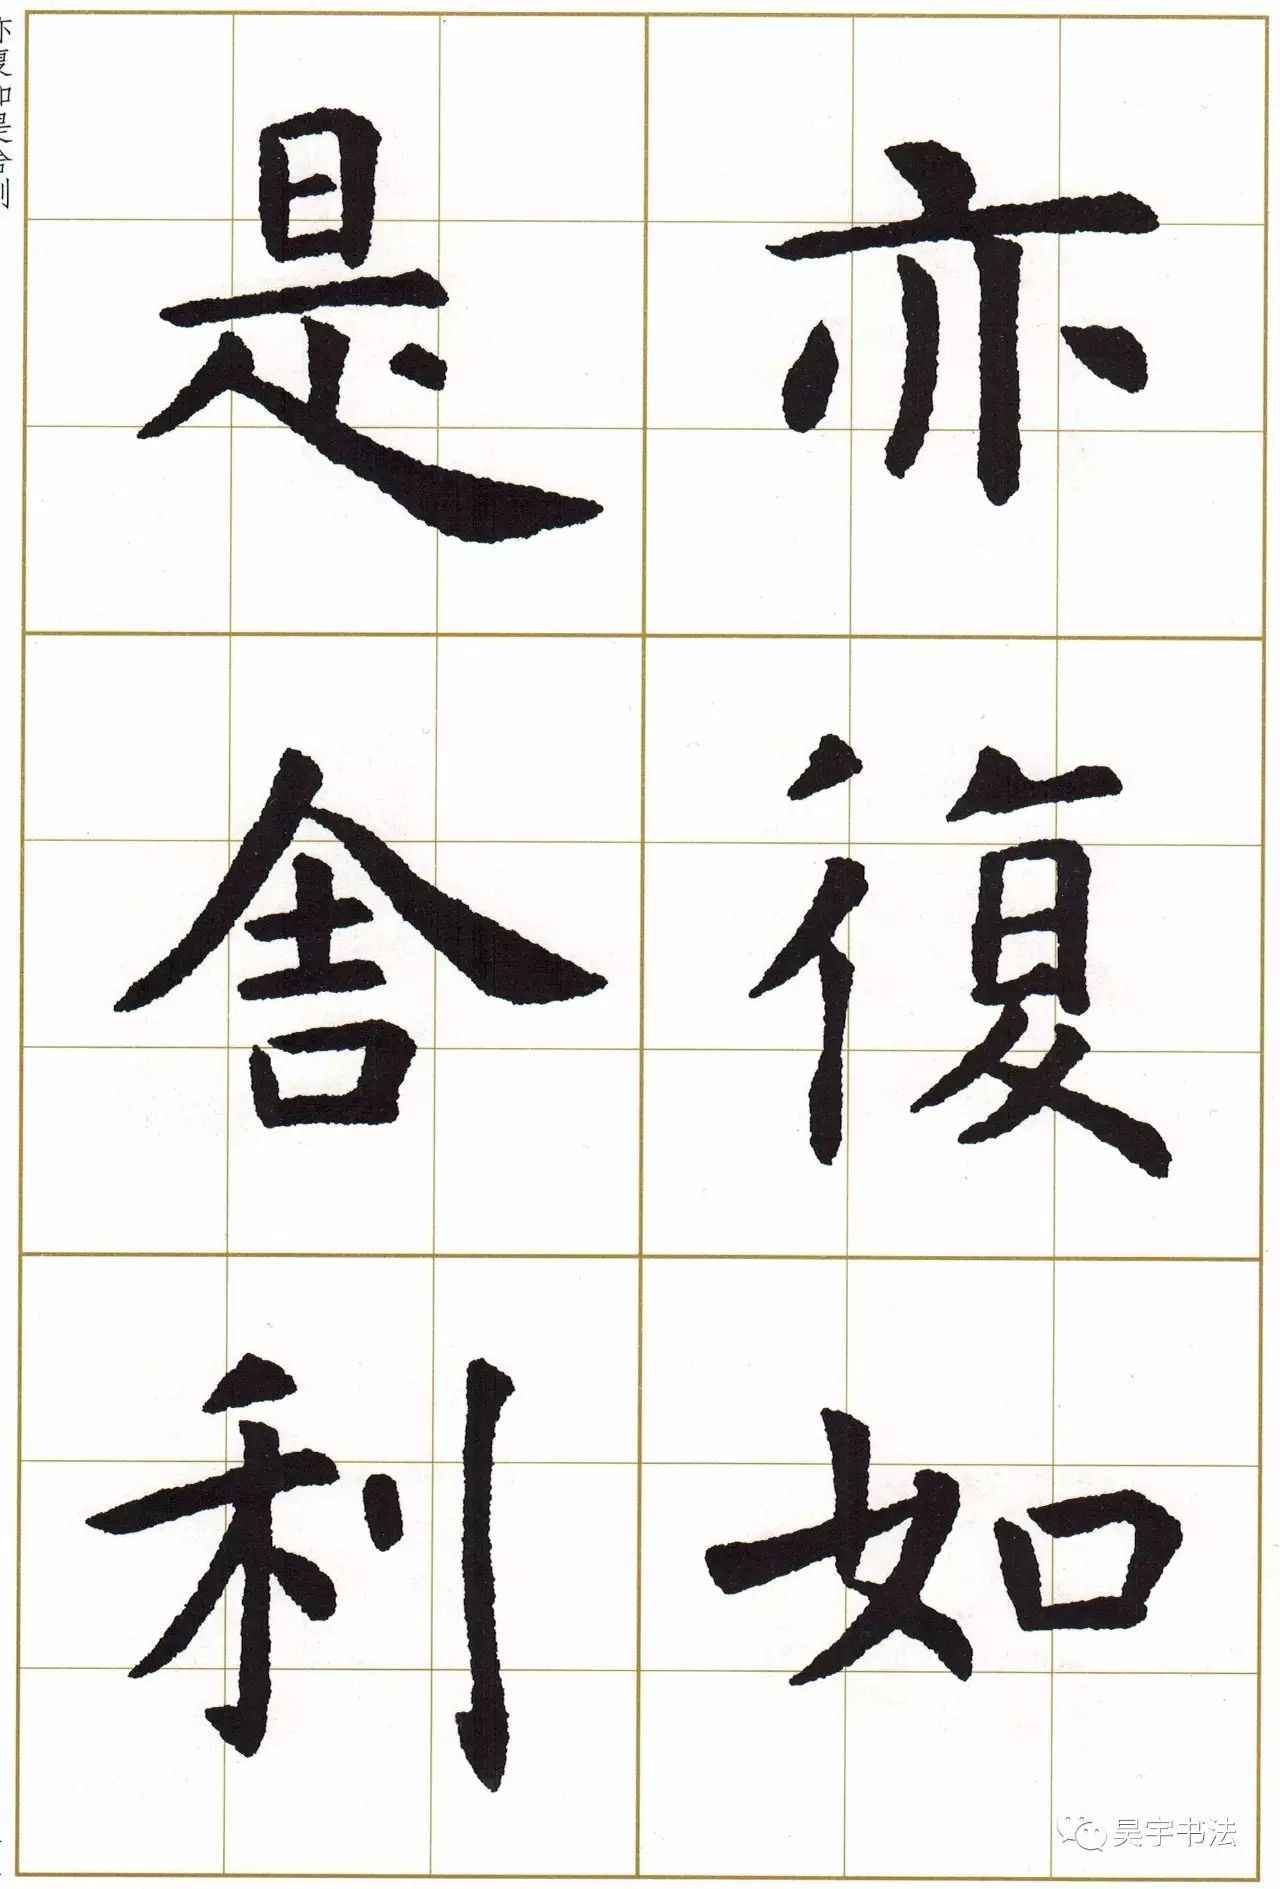 亦復如
是舍利
亦復如是舍利
昊宇书法